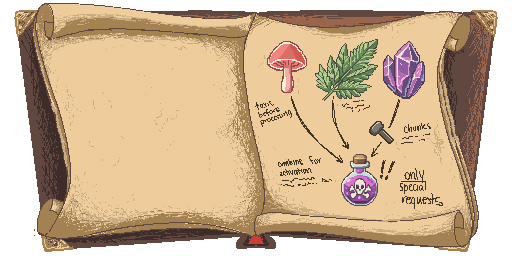 toxic
before
processing
chunks
combine for
activation
!!
only
special
requests